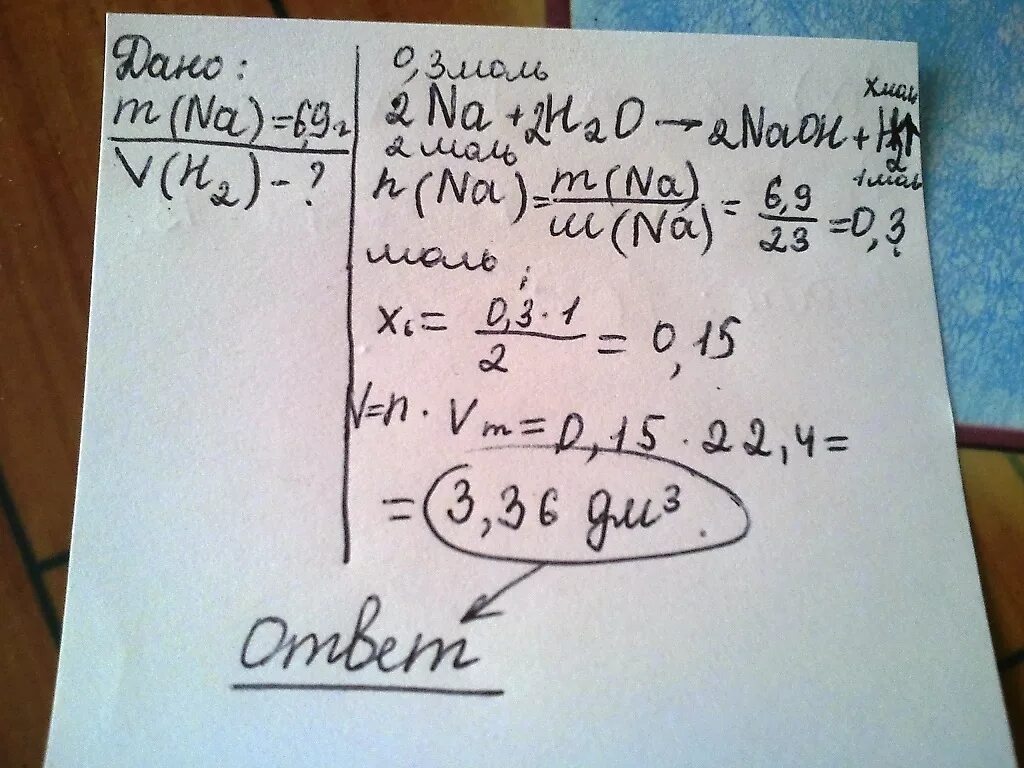 Дано:
m(Na)=6,9г
V(H₂)-?
0,3моль
xмоль
2Na+2H₂O→2NaOH+H₂↑
2моль
1моль
n(Na)=m(Na)/M(Na)=6,9/23=0,3
моль;
x=0,3·1/2=0,15
V=n·Vm=0,15·22,4=
=3,36 дм³.
Ответ